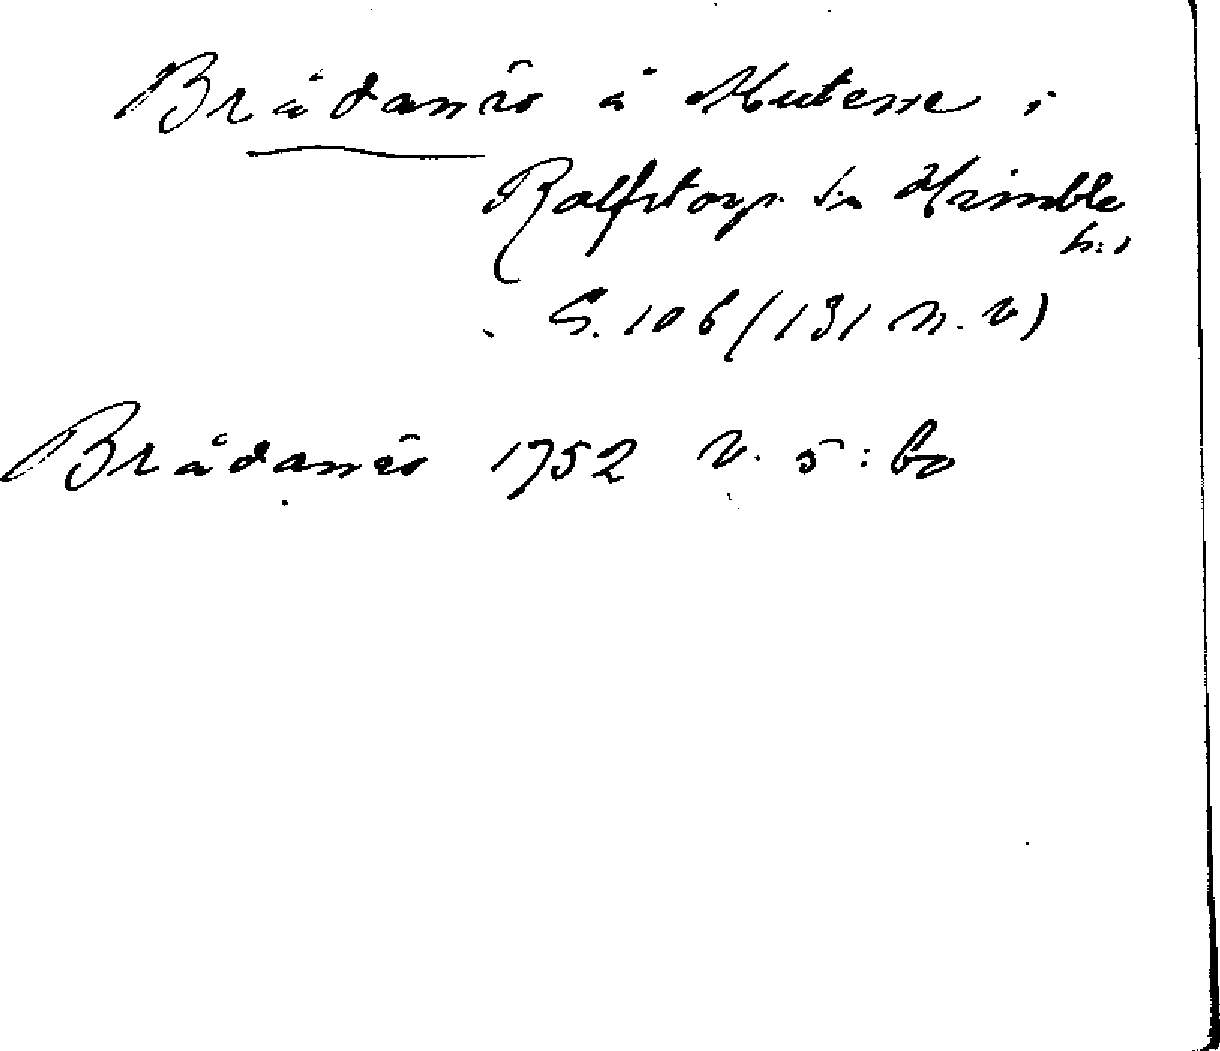 Brådanäs å Mutene i
Rolfstorp sn Himble
h:d
S. 106 (131 n. v)
Brådanäs 1752 V. 5:60